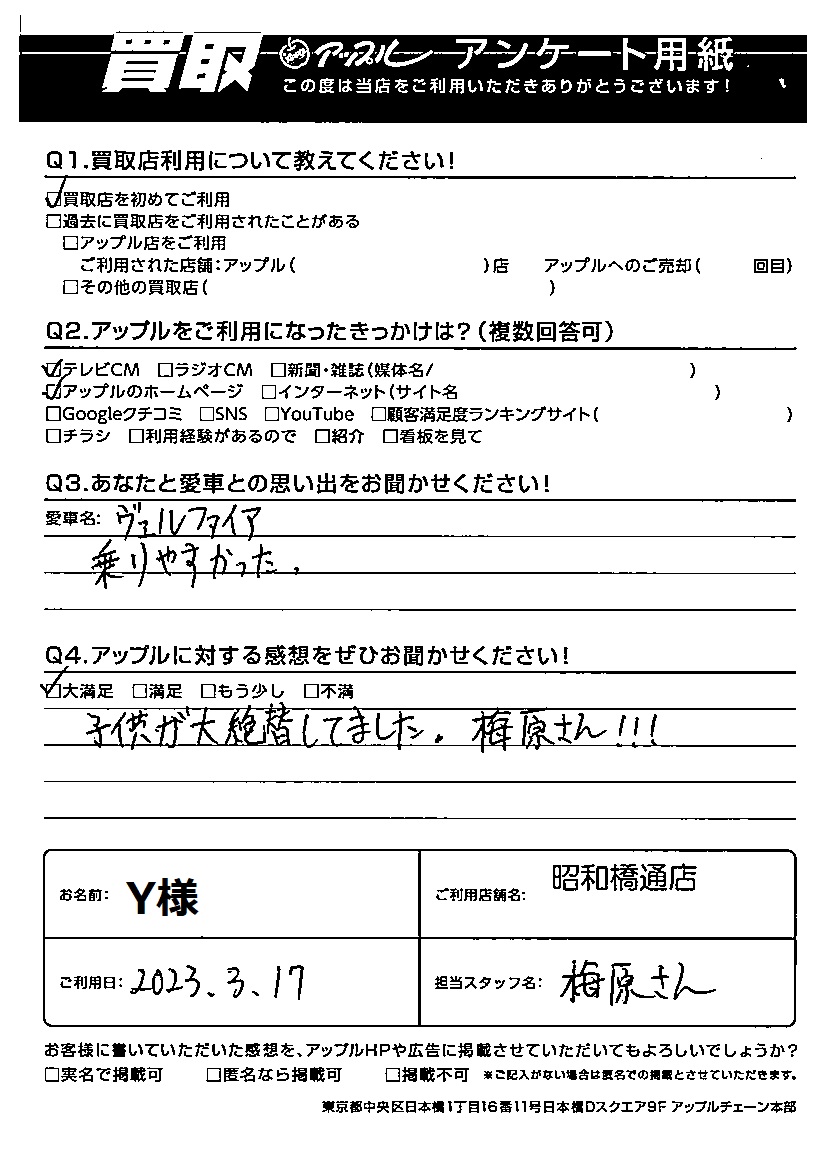 買取 アップル アンケート用紙
この度は当店をご利用いただきありがとうございます!
Q1.買取店利用について教えてください!
☑買取店を初めてご利用
□過去に買取店をご利用されたことがある
□アップル店をご利用
ご利用された店舗:アップル( )店 アップルへのご売却( 回目)
□その他の買取店( )
Q2.アップルをご利用になったきっかけは?(複数回答可)
☑テレビCM □ラジオCM □新聞・雑誌(媒体名/ )
☑アップルのホームページ □インターネット(サイト名 )
□Googleクチコミ □SNS □YouTube □顧客満足度ランキングサイト( )
□チラシ □利用経験があるので □紹介 □看板を見て
Q3.あなたと愛車との思い出をお聞かせください!
愛車名: ヴェルファイア
乗りやすかった.
Q4.アップルに対する感想をぜひお聞かせください!
☑大満足 □満足 □もう少し □不満
子供が大絶替してました。梅原さん!!!
お名前: Y様 ご利用店舗名: 昭和橋通店
ご利用日: 2023.3.17 担当スタッフ名: 梅原さん
お客様に書いていただいた感想を、アップルHPや広告に掲載させていただいてもよろしいでしょうか?
□実名で掲載可 □匿名なら掲載可 □掲載不可 ※ご記入がない場合は匿名での掲載とさせていただきます。
東京都中央区日本橋1丁目16番11号日本橋Dスクエア9F アップルチェーン本部